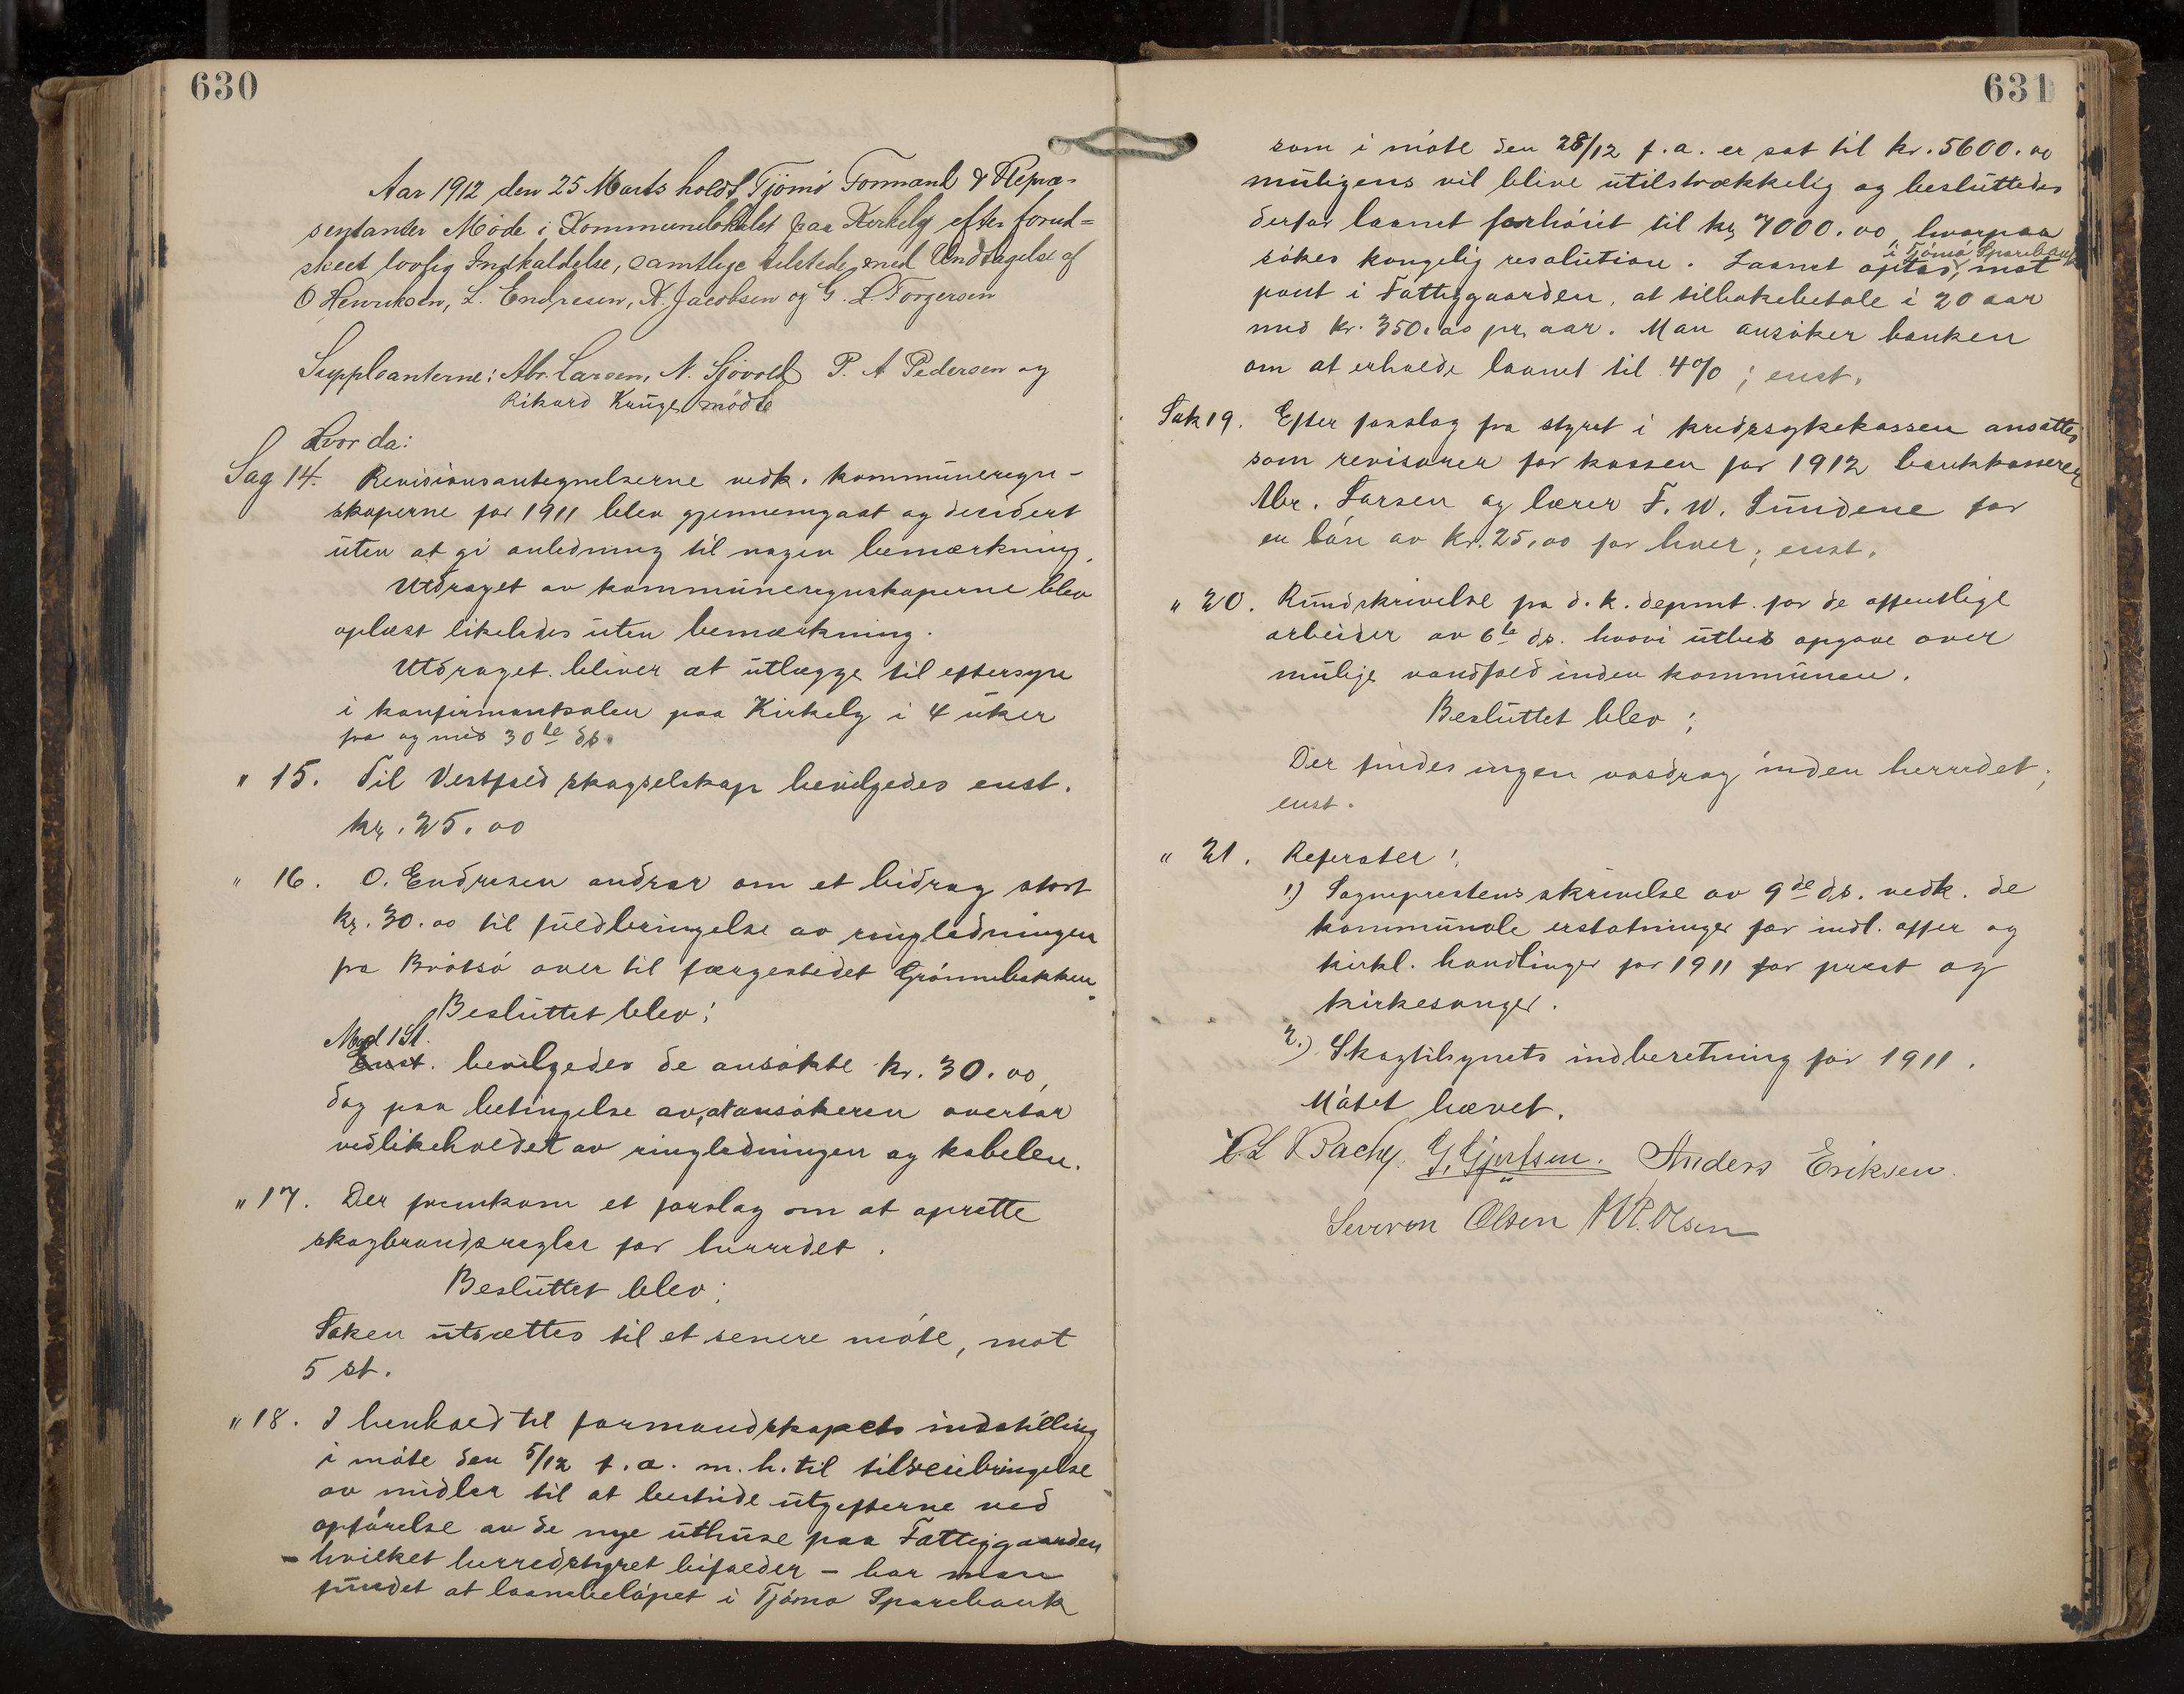 630
Aar 1912 den 25 Marts holdt Tjömö Formand & Repræ-
sentanter Møde i Kommunelokalet paa Kirkely efter forud=
skeet lovlig Indkaldelse, samtlige tilstede med Undtagelse af
O Henriksen, L. Endresen, K. Jacobsen og G. L. Torgersen
Suppleanterne: Abr. Larsen, N. Sjövold P. A Pedersen og
Rikard Krüger mödte
Hvor da:
Sag 14. Revisionsantegnelserne vedk. kommuneregn-
skaperne for 1911 blev gjennemgaat og decidert
uten at gi anledning til nogen bemærkning.
Utdraget av kommuneregnskaperne blev
oplæst likeledes uten bemærkning.
Utdraget bliver at utlægge til eftersyn
i konfirmantsalen paa Kirkely i 4 uker
fra og med 30te ds.
" 15. Til Vestfold skogselskap bevilgedes enst.
kr. 25.00
" 16. O. Endresen andrar om et bidrag stort
kr. 30.00 til fuldbringelse av ringledningen
fra Brötsö over til færgestedet Grönnebakken.
Besluttet blev:
Mod 1 St.
Enst. bevilgedes de ansökte kr. 30.00,
dog paa betingelse av, at ansökeren overtar
vedlikeholdet av ringledningen og kabelen.
" 17. Der fremkom et forslag om at oprette
skogbrandsregler for herredet.
Besluttet blev:
Saken utsættes til et senere möte, mot
5 st.
" 18. I henhold til formandskapets indstilling
i möte den 5/12 f.a. m.h. til tilveiebringelse
av midler til at bestride utgifterne ved
opförelse av de nye uthuse paa Fattiggaarden
- hvilket herredstyret bifalder - har man
fundet at laanebelöpet i Tjömö Sparebank
631
som i möte den 28/12 f.a. er sat til kr. 5600.00
muligens vil blive utilstrækkelig og besluttedes
derfor laanet forhöiet til kr 7000.00, hvorpaa
i Tjömö Sparebank
sökes kongelig resolution. Laanet optas, mot
pant i Fattiggaarden, at tilbakebetale i 20 aar
med kr. 350.00 pr. aar. Man ansöker banken
om at erholde laanet til 4%; enst.
Sak 19. Efter forslag fra styret i kredssykekassen ansattes
som revisorer for kassen for 1912 bankkasserer
Abr. Larsen og lærer F. W. Sundene for
en lön av kr. 25,00 for hver; enst.
" 20. Rundskrivelse fra d. k. depmt. for de offentlige
arbeider av 6te ds. hvori utbes opgave over
mulige vandfald inden kommunen.
Besluttet blev:
Der findes ingen vasdrag inden herredet;
enst.
" 21. Referater:
1.) Sogneprestens skrivelse av 9de ds. vedk. de
kommunale erstatninger for indl. offer og
kirkl. handlinger for 1911 for prest og
kirkesanger.
2.) Skogtilsynets indberetning for 1911.
Mötet hævet.
C L Bache G. Gjertsen. Anders Eriksen.
Olsen Olsen